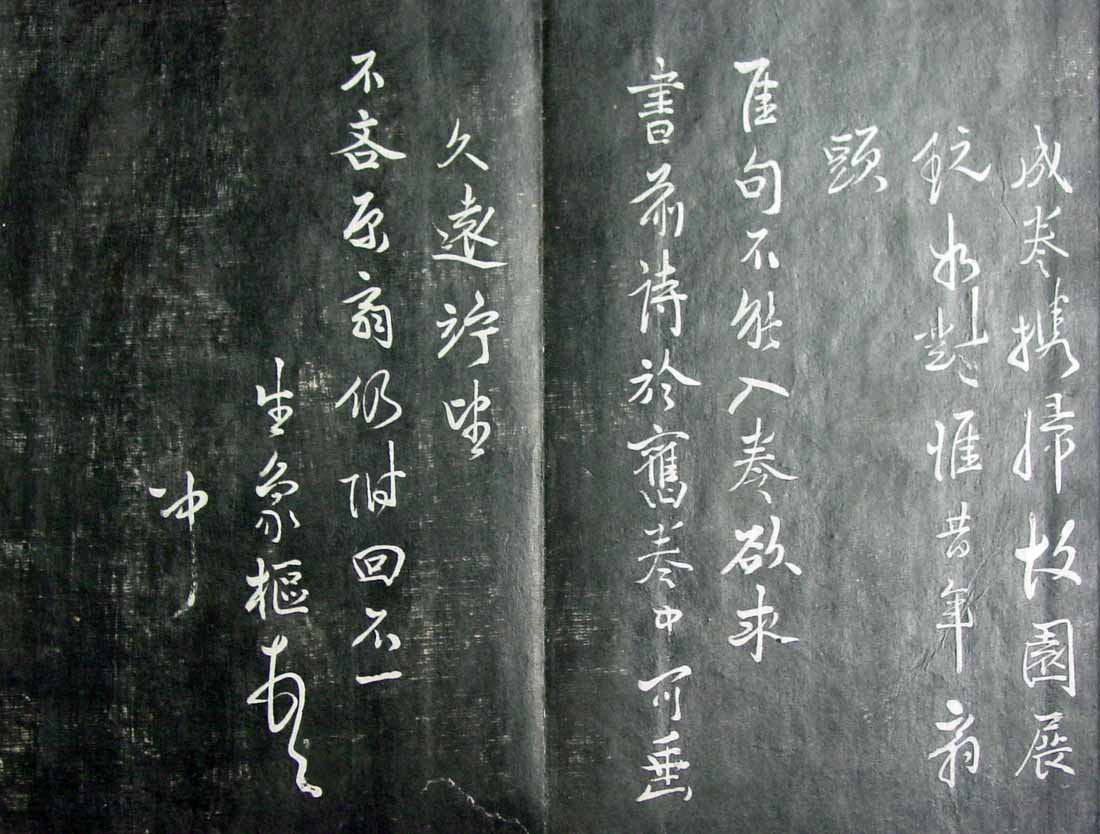 成卷攜歸故園展
玩如對惟昔年扇
頭
佳句不能入卷欲求
書前詩於舊卷中可垂
久遠竚望
不吝原扇仍附回不一
生象樞
冲